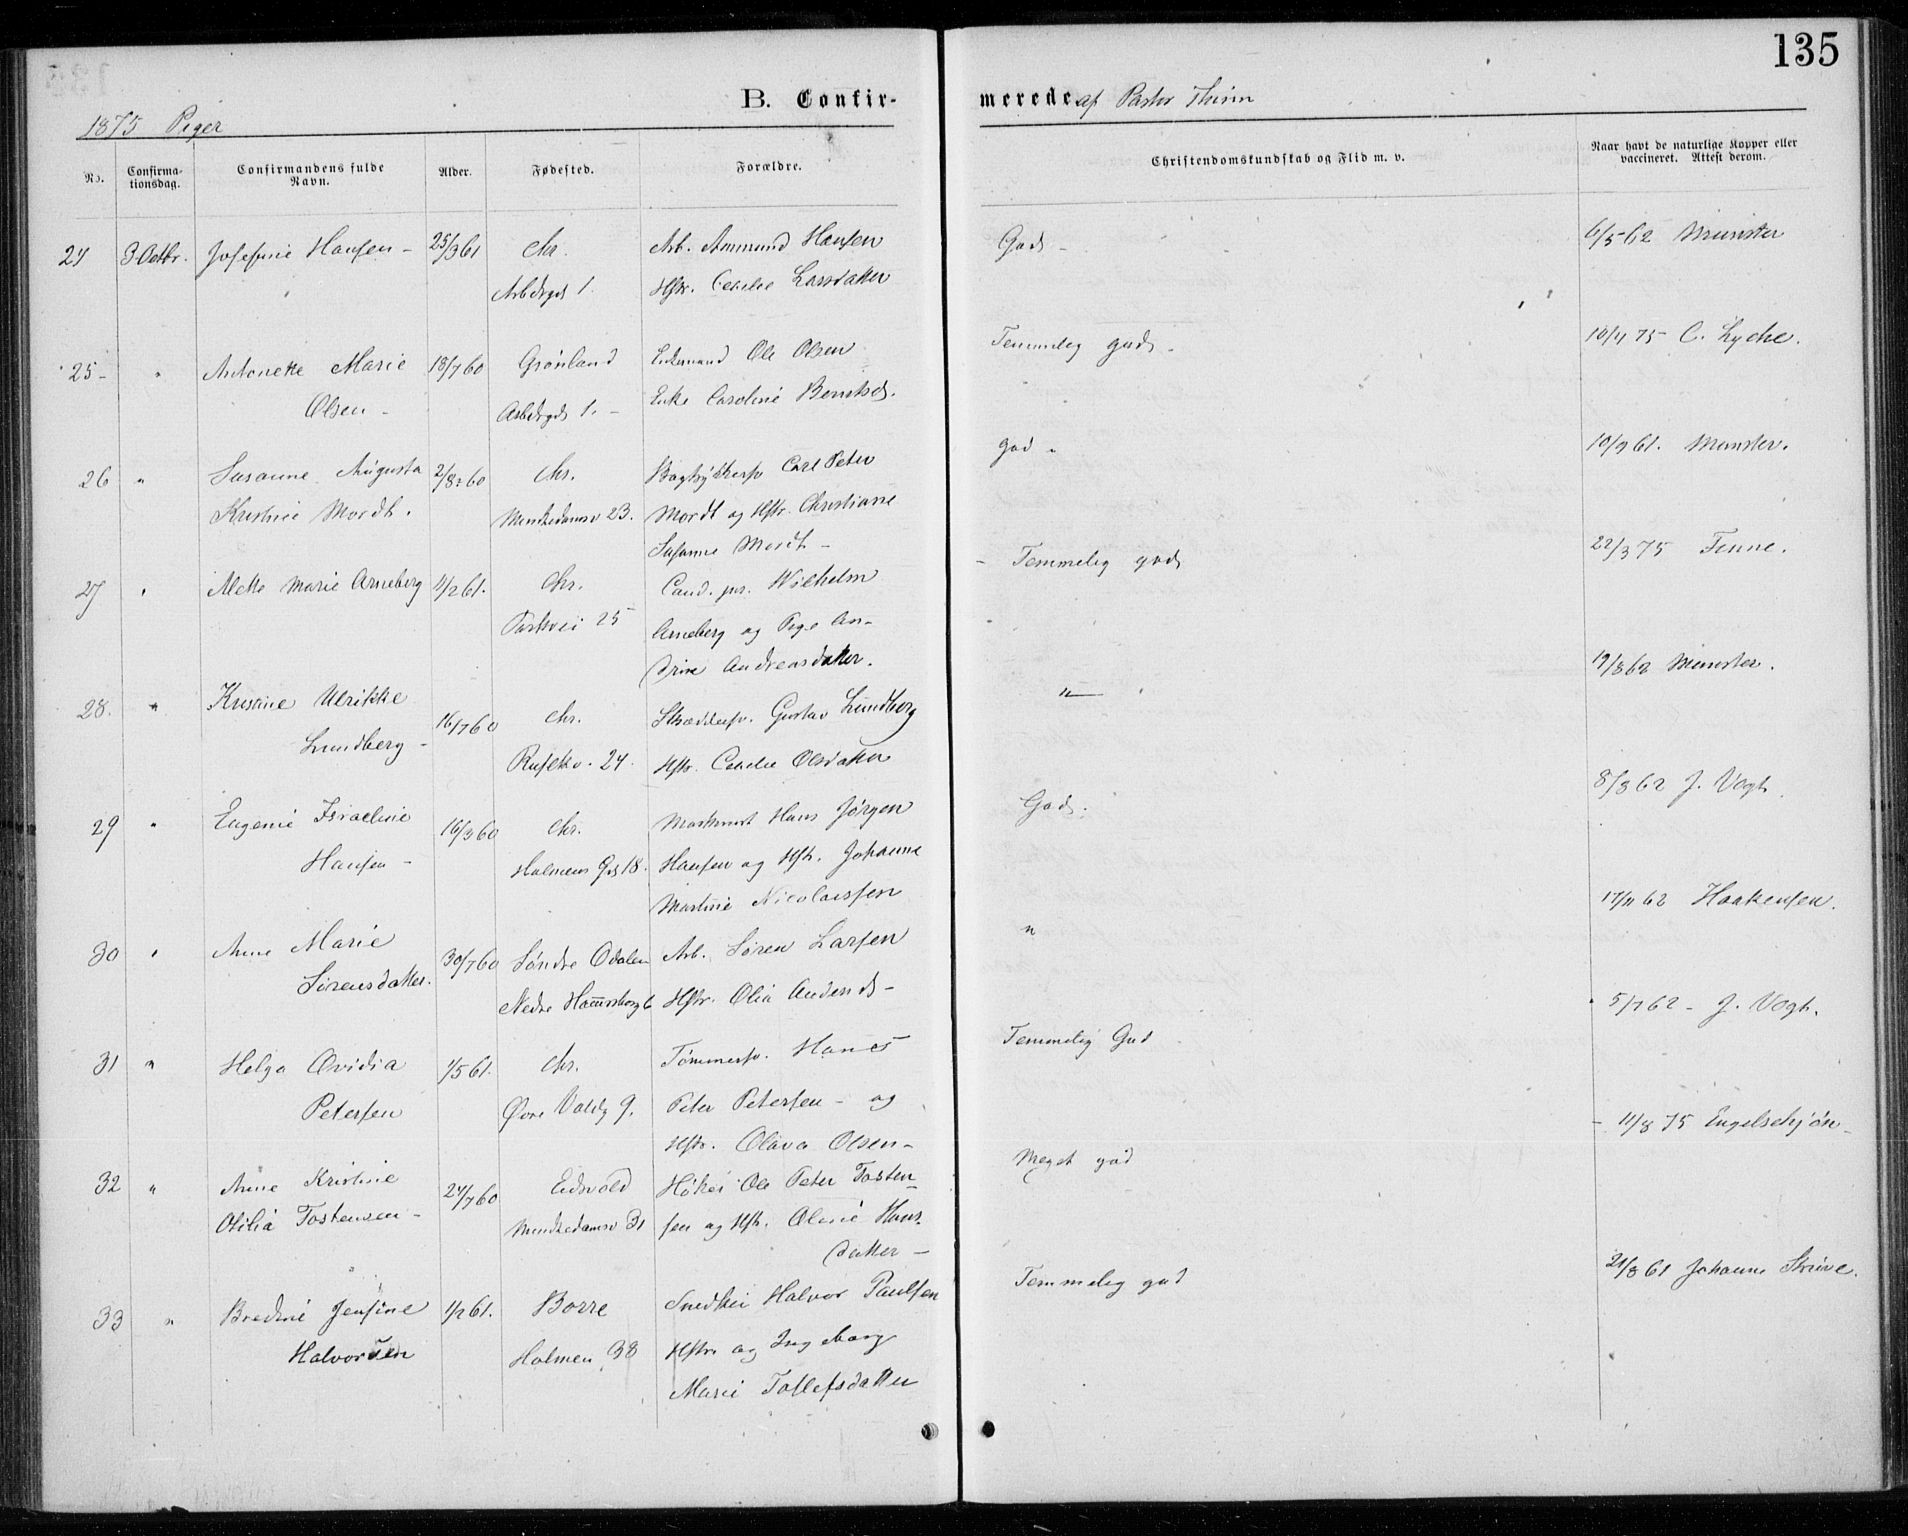 135
1875 Piger
B. Confir-
merede af Pastor Thinn
No.
Confirma-
tionsdag.
Confirmandens fulde
Navn.
Alder.
Fødested.
Forældre.
Christendomskundskab og Flid m. v.
Naar havt de naturlige Kopper eller
vaccineret. Attest derom.
24 3 Octbr. Josefine Hansen - 25/3 61 Chr. Arb. Ammund Hansen God - 6/5 62 Münster
Arbdrgd 1. Hstr. Cecilie Larsdatter
25 - " Antonette Marie 18/7 60 Grønland Enkemand Ole Olsen Temmelig god - 10/4 75 C. Lyche.
Olsen - Arbdrgd 1. - Enke Caroline Berntsd.
26 " Susanne Augusta 2/8 60 Chr. Bogtrykkersv Carl Peter god " 10/9 61. Münster.
Kristine Mordt. Munkedamsv 23. Mordt og Hstr. Christiane
Susanne Mordt -
27 " Alette Marie Arneberg 11/2 61. Chr. Cand. jur. Wilhelm - Temmelig god 22/3 75 Finne.
Parkvei 25 Arneberg og Pige An-
drine Andreasdatter.
28. " Kristine Ulrikke 16/7 60 Chr. Skræddersv. Gustav Lundberg " 19/8 62 Münster.
Lundberg - Rusekv. 24. Hstr. Cecilie Olsdatter
29 " Eugenie Israeline 16/3 60 Chr. Maskinist Hans Jørgen God. 8/3 62 J. Vogt.
Hansen - Holmens Gd 18. Hansen og Hstr. Johanne
Martine Nicolaissen
30 " Anne Marie 30/7 60 Søndre Odalen Arb. Søren Larsen " 17/11 62 Haakensen.
Sørensdatter. Nedre Hammersborg 6 Hstr. Olia Andersd -
31 " Helga Ovidia 1/5 61. Chr. Tømmersv. Hans Temmelig God 5/7 62 - J. Vogt.
Petersen Øvre Voldg 9. Peter Petersen - og
Hstr. Olava Olsen -
32 " Anne Kristine 24/7 60 Eidsvold Høker Ole Peter Tosten- Meget god - 11/8 75 Engelschjøn -
Otilia Tostensen - Munkedamsv 31 sen og Hstr. Oline Hans-
datter -
33 " Bredine Jensine 1/2 61. Borre Snedker Halvor Paulsen Temmelig god 21/8 61 Johanne Skrive.
Halvorsen Holmen 38 Hstr. og Ingeborg
Marie Tollefsdatter